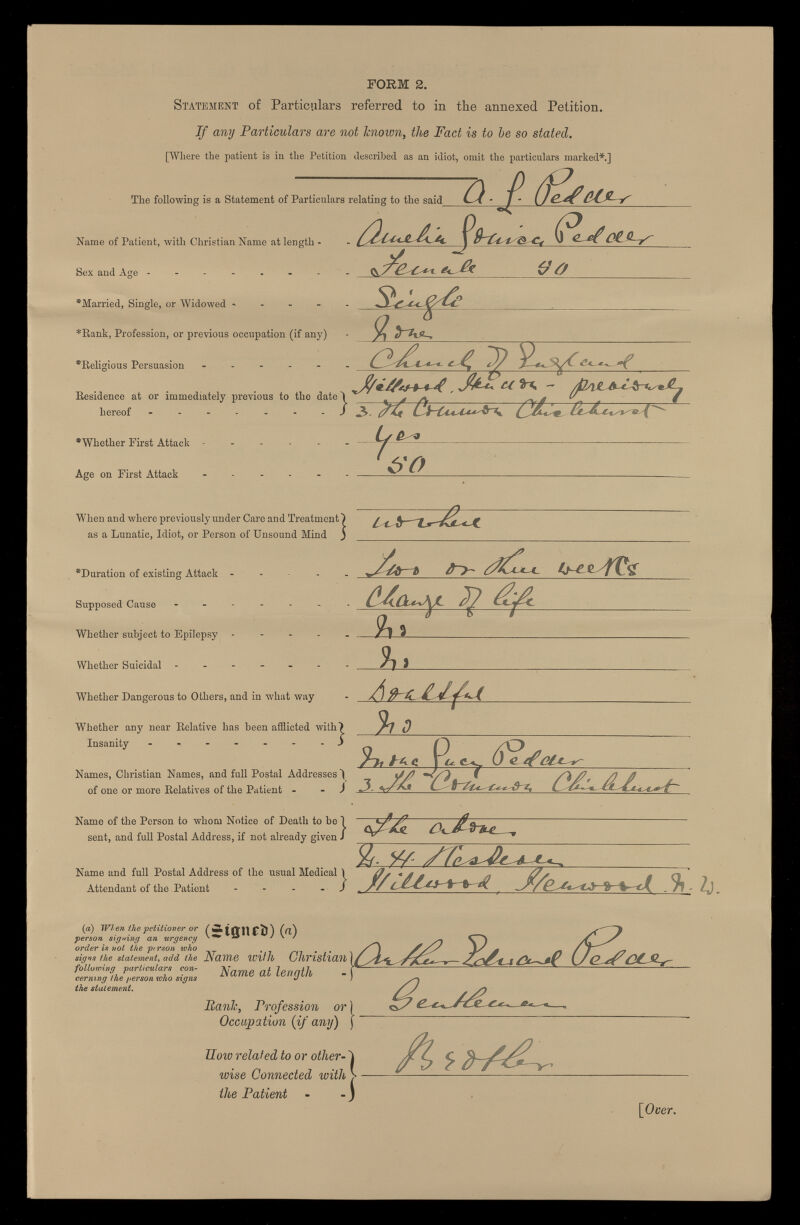 FORM 2.
STATEMENT of Particulars referred to in the annexed Petition.
If any Particulars are not known, the Fact is to be so stated.
[Where the patient is in the Petition described as an idiot, omit the particulars marked*.]
The following is a Statement of Particulars relating to the said A. L. Pedder
Name of Patient, with Christian Name at length - - Amelia Louisa Pedder
Sex and Age - - - - - - - - Female 50
*Married, Single, or Widowed - - - - - Single
*Rank, Profession, or previous occupation (if any) - None
*Religious Persuasion - - - - - - Church of England
Residence at or immediately previous to the date Hillwood, - previously
hereof - - - - - - - 3. The Common Chislehurst
*Whether First Attack - - - - - - Yes
Age on First Attack - - - - - - 50
When and where previously under Care and Treatment
as a Lunatic, Idiot, or Person of Unsound Mind nowhere
*Duration of existing Attack - - - - - Two or three weeks
Supposed Cause - - - - - - - Change of life
Whether subject to Epilepsy - - - - - No
Whether Suicidal - - - - - - - No
Whether Dangerous to Others, and in what way - Doubtful
Whether any near Relative has been afflicted with No
Insanity - - - - - - -
Lucy Pedder
Names, Christian Names, and full Postal Addresses
of one or more Relatives of the Patient - - 3. The Common Chislehurst
Name of the Person to whom Notice of Death to be
sent, and full Postal Address, if not already given The above
H.
Name and full Postal Address of the usual Medical
Attendant of the Patient - - - - Hillwood, N. W.
(a) When the petitioner or person signing an urgency order is not the person who signs the statement, add the following particulars concerning the person who signs the statement.
(Signed) (a)
Name with Christian Name at length - Arthur Edward Pedder
Rank, Profession or Occupation (if any) Gentleman
How related to or otherwise Connected with the Patient - - Brother
[Over.